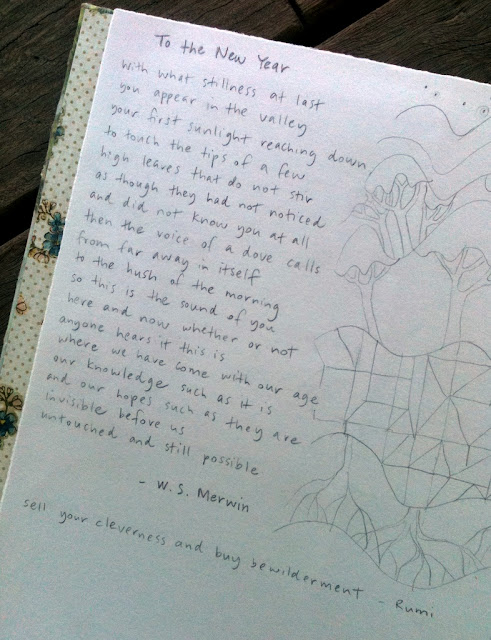 To the New Year
with what stillness at last
you appear in the valley
your first sunlight reaching down
to touch the tips of a few
high leaves that do not stir
as though they had not noticed
and did not know you at all
then the voice of a dove calls
from far away in itself
to the hush of the morning
so this is the sound of you
here and now whether or not
anyone hears it this is
where we have come with our age
our knowledge such as it is
and our hopes such as they are
invisible before us
untouched and still possible
- W. S. Merwin
sell your cleverness and buy bewilderment - Rumi